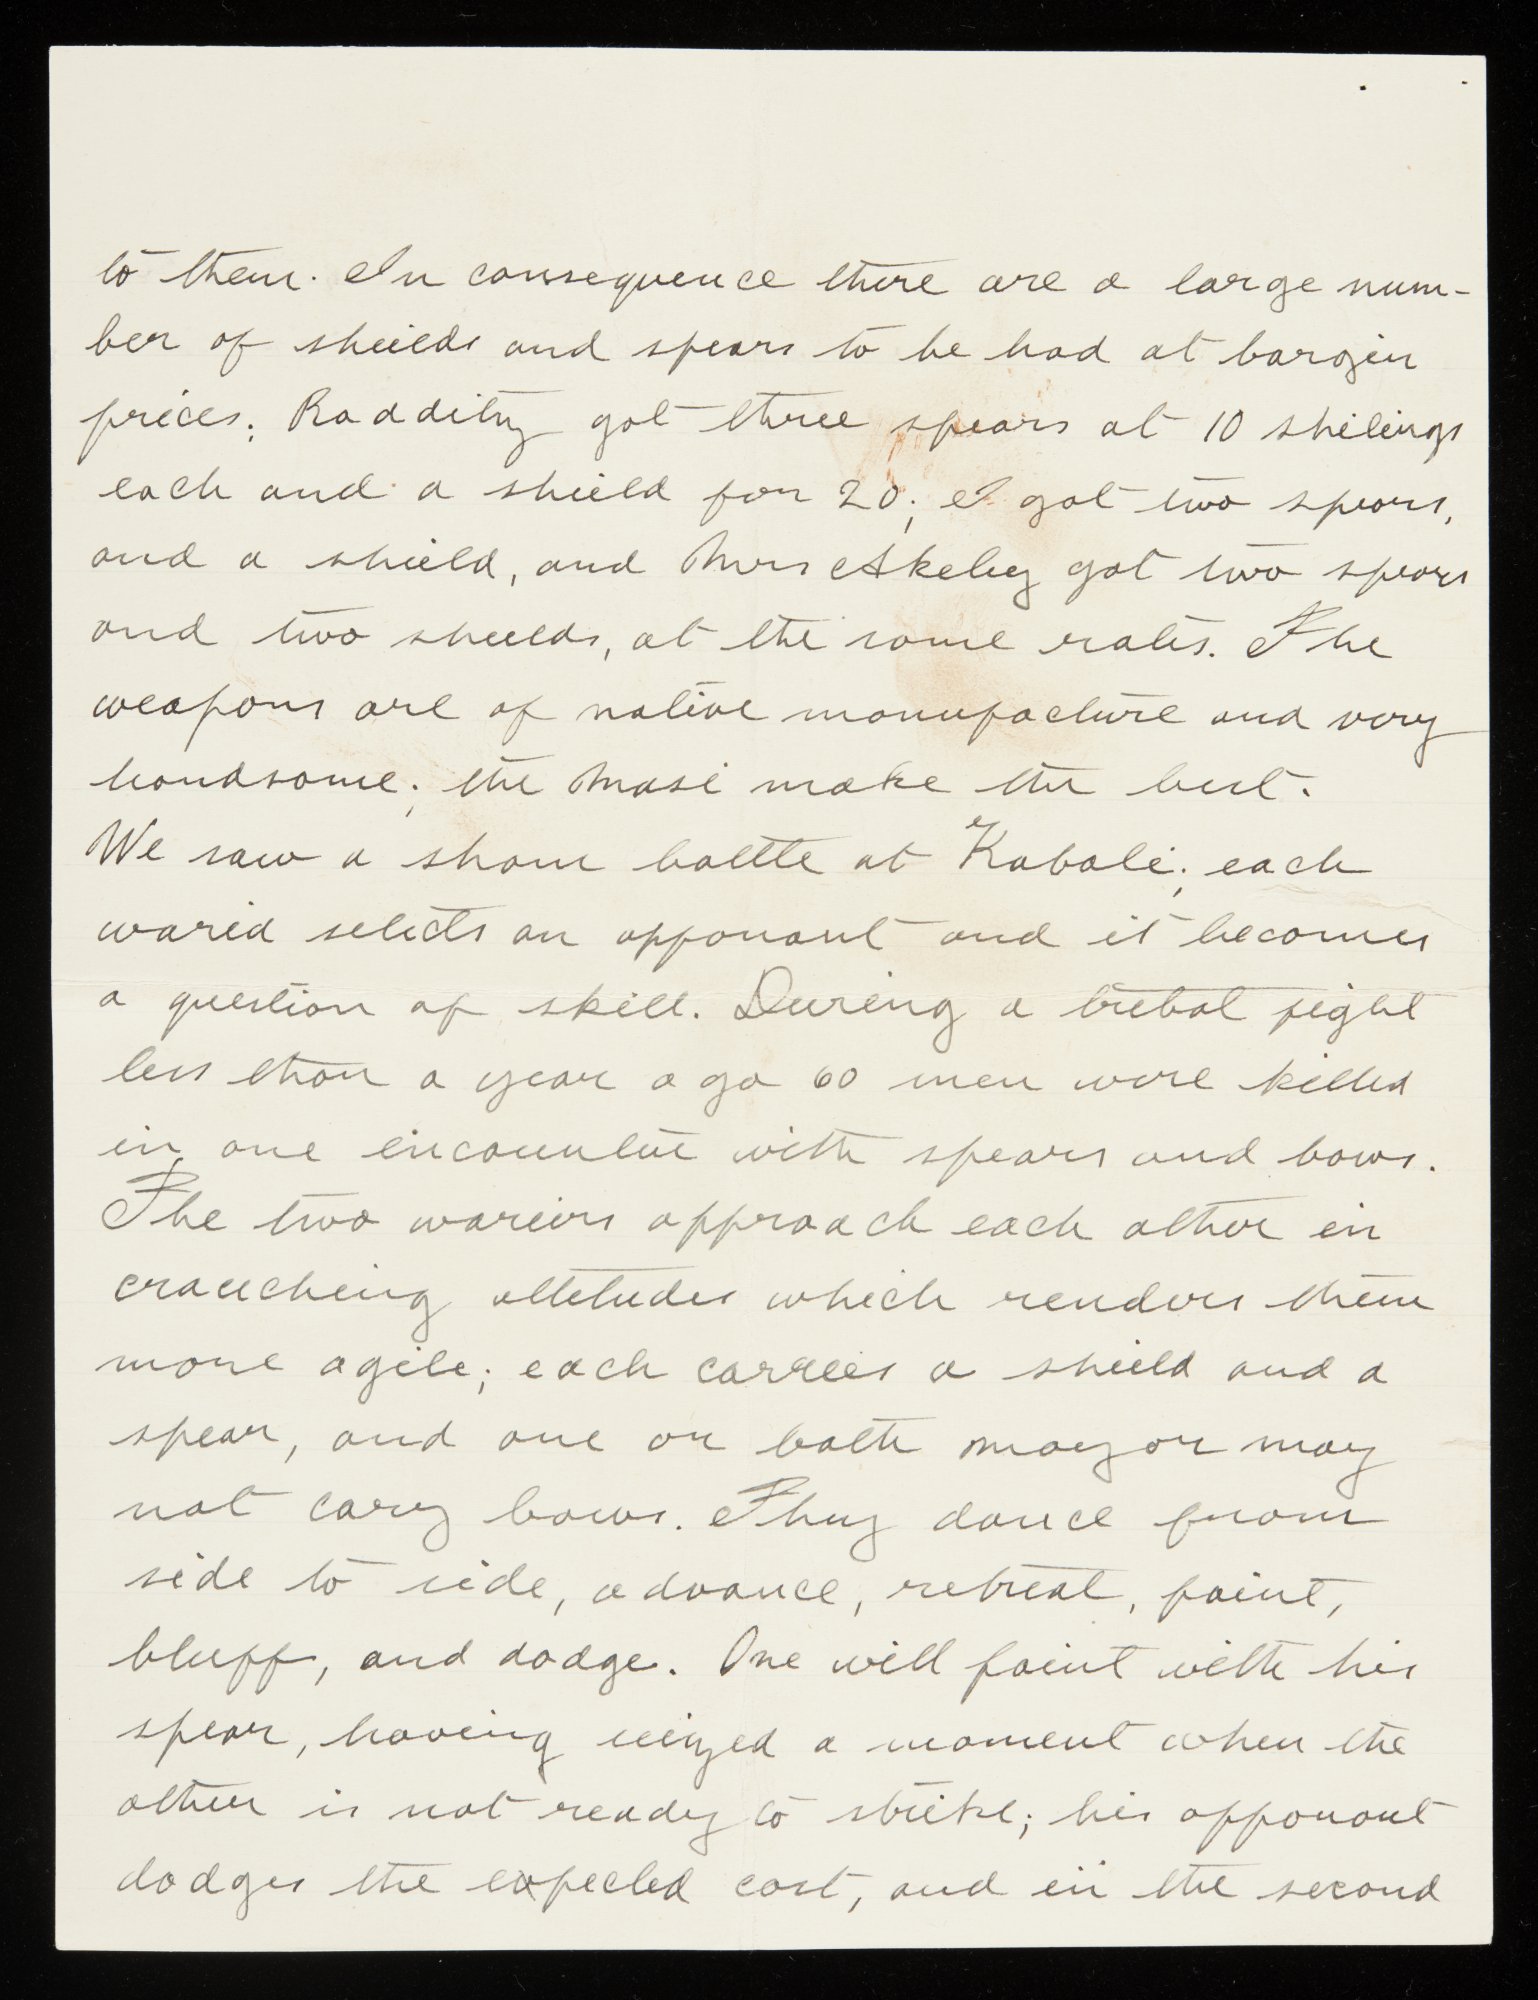 to them. In consequence there are a large num-
ber of shields and spears to be had at bargin
prices; Raddity got three spears at 10 shilings
each and a shield for 20; I got two spears,
and a shield, and Mrs Akeley got two spears
and two shields, at the same rates. The
weapons are of native manufacture and very
handsome; the Masi make the best.
We saw a sham battle at Kabale; each
waried selects an opponant and it becomes
a question of skill. During a tribal fight
less than a year ago 60 men were killed
in one encounter with spears and bows.
The two wariors approach each other in
crauching attetudes which renders them
more agile; each carries a shield and a
spear, and one or both may or may
not cary bows. They dance from
side to side, advance, retreat, faint,
bluff, and dodge. One will faint with his
spear, having seized a moment when the
other is not ready to strike; his opponant
dodges the expected cast, and in the second